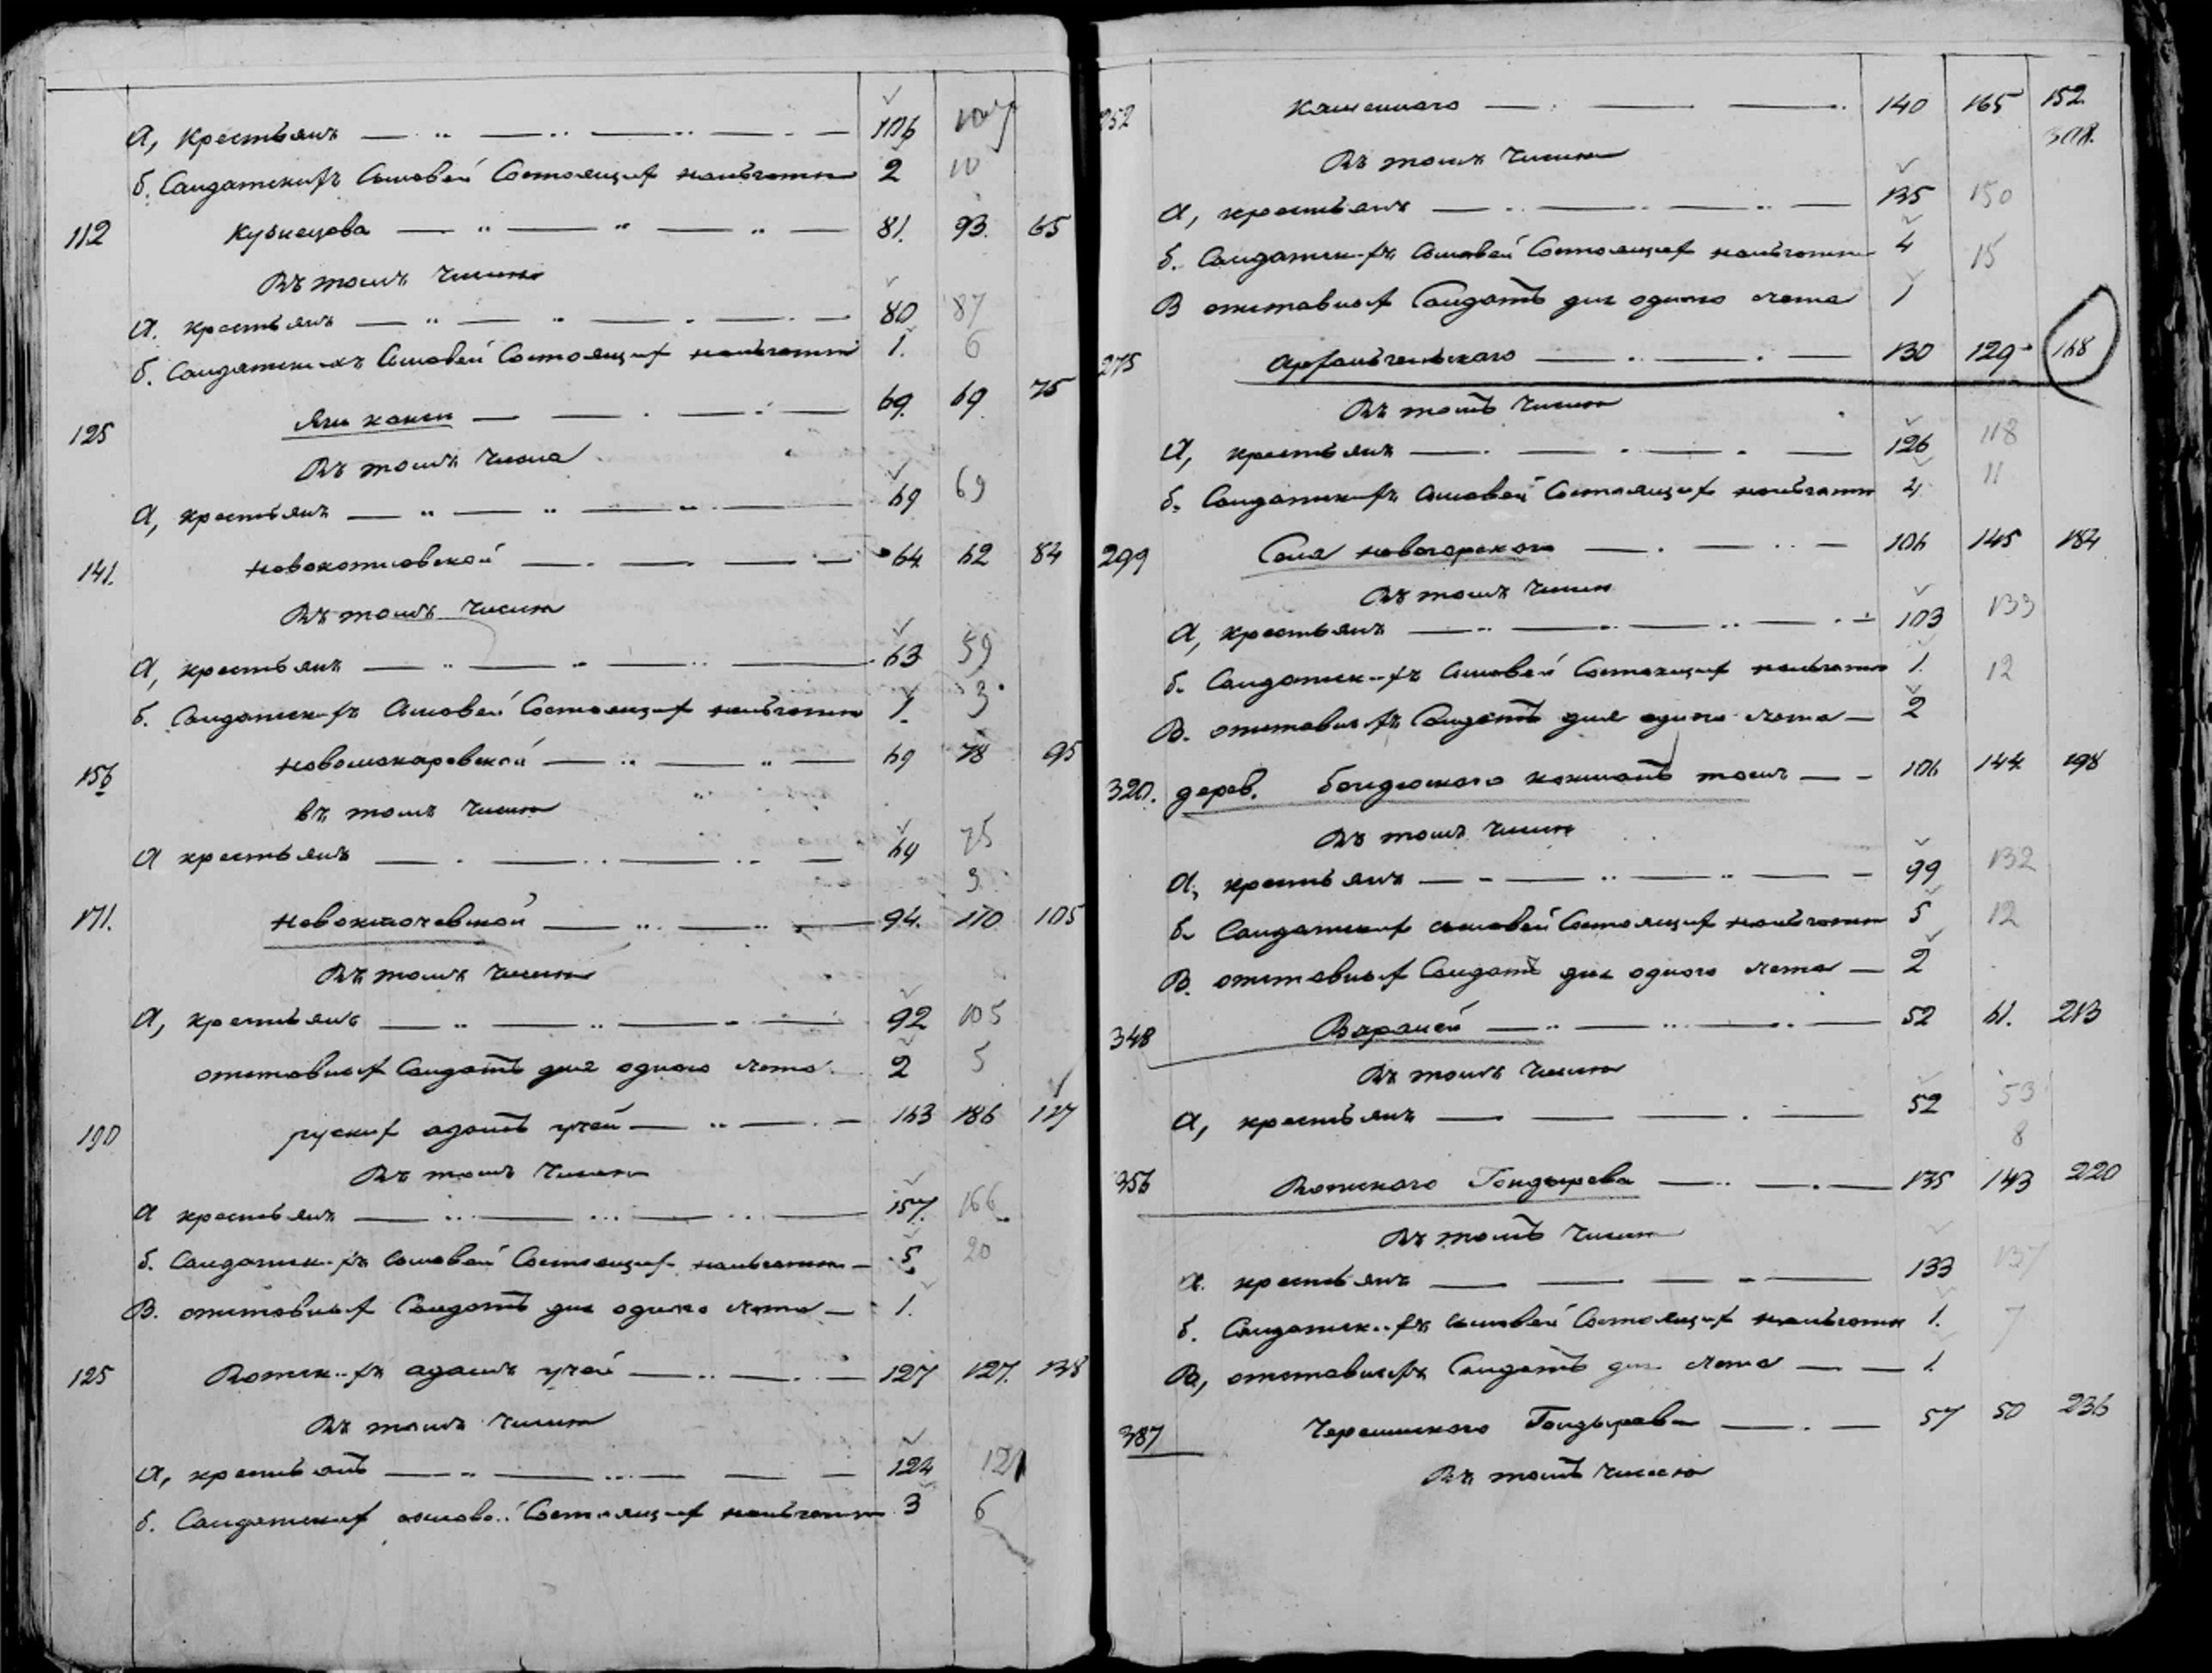 а, Крестьянъ 106
б. Солдатскихъ сыновей состоящих 2 10
112 Кузнецова 81. 93. 65
Въ томъ числѣ
а. крестьянъ 80 87
б. Солдатскихъ сыновей состоящих 1. 6
125 69. 69 75
Въ томъ числѣ
а, крестьянъ 69 69
141. Новокотловской 64 62 84
Въ томъ числѣ
а, крестьянъ 63 59
б. Солдатскихъ сыновей состоящих 1. 3
156 Новомакаровской 69 78 95
въ томъ числѣ
а крестьянъ 69 75
3.
171. Новоключевской 94. 110 105
Въ томъ числѣ
а, крестьянъ 92 105
отставных солдатъ для одного счета 2 5
190 руских адамъ учей 163 186 127
Въ томъ числѣ
а крестьянъ 157. 166
б. Солдатскихъ сыновей состоящих 5 20
В. отставных солдатъ для одного счета 1.
125 Вотскихъ адамъ учей 127 127. 138
Въ томъ числѣ
а, крестьянъ 124 121
б. Солдатских сынове. состоящих 3 6
252 Каменного 140 165 152
308.
Въ томъ числѣ
а, крестьянъ 135 150
б. Солдатскихъ сыновей состоящих 4 15
В отставных солдатъ для одного счета 1
275 Архангельского 130 129 168
Въ томъ числѣ
а, крестьянъ 126 118
б. Солдатскихъ сыновей состоящих 4 11
299 Села Новогорского 106 145 184
Въ томъ числѣ
а, крестьянъ 103 133
б. Солдатскихъ сыновей состоящих 1. 12
В. отставныхъ солдатъ для одного счета 2
320. дерев. 106 144 198
Въ томъ числѣ
а, крестьянъ 99 132
б. Солдатских сыновей состоящих 5 12
В. отставных солдатъ для одного счета 2
348 Варалей 52 61. 213
Въ томъ числѣ
а, крестьянъ 52 53
8
356 Вотского Гондырева 135 143 220
Въ томъ числѣ
а. крестьянъ 133 137
б. Солдатскихъ сыновей состоящих 1. 7
В, отставныхъ солдатъ для счета 1.
387 Черемиского Гондырева 57 50 236
Въ томъ числѣ